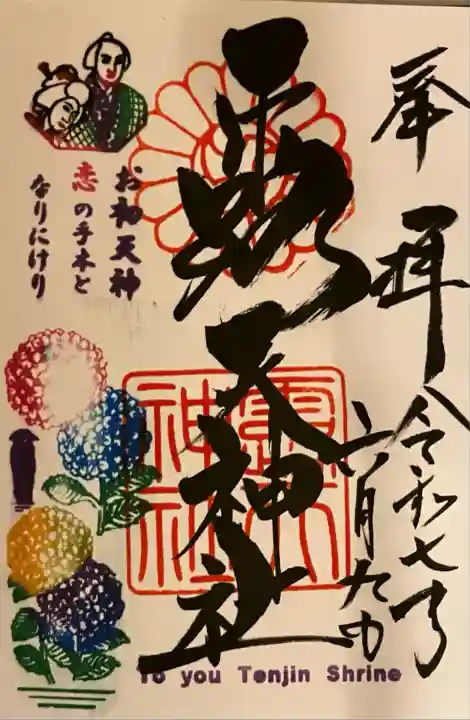 奉拝
令和七年
六月九日
露天神社
露天
神社
お初天神
恋の手本と
なりにけり
To you Tenjin Shrine